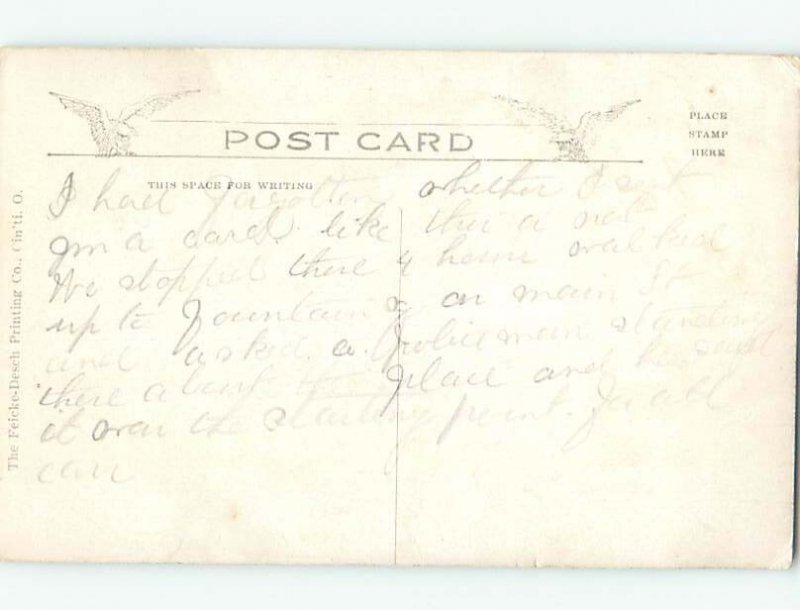 POST CARD
PLACE
STAMP
HERE
THIS SPACE FOR WRITING
The Feicke-Desch Printing Co., Cin'ti, O.
I had forgotten whether I sent
a card like this a not
We stopped there 4 hours walked
up to Fountain on main St
and asked a Policeman standing
there about the place and he said
it was the starting point for all
cars